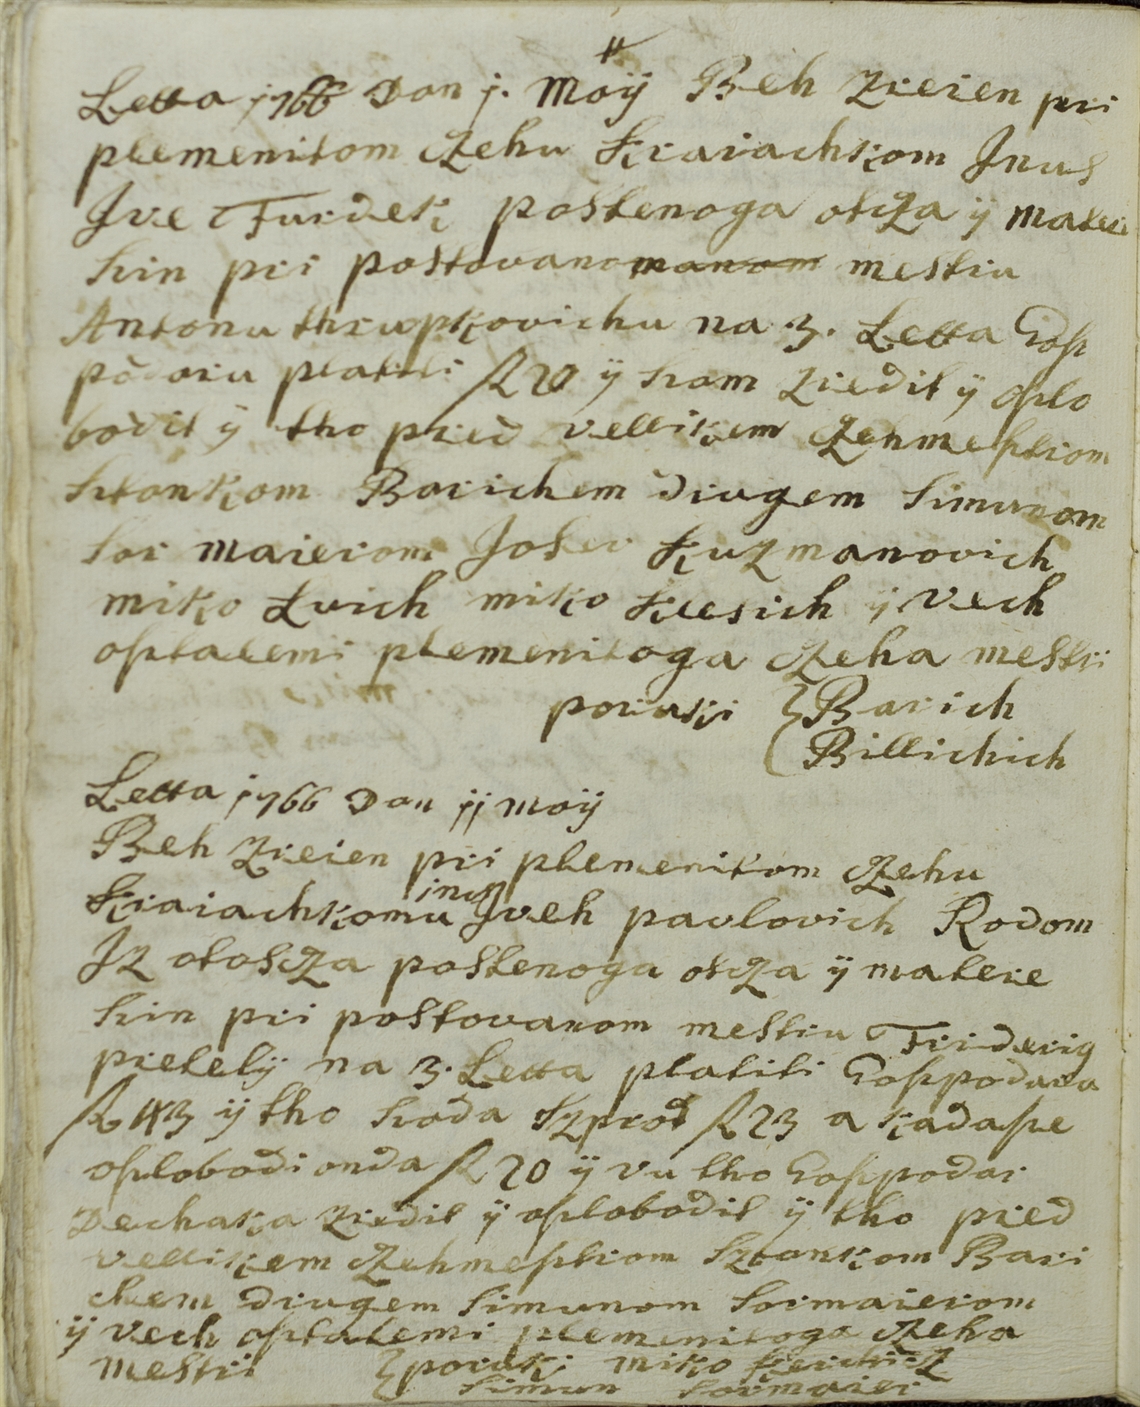 Letta 1766 Dan j. Maÿ Beh zreien pri
plemenitom czehu kraiachkom Jnus
Jve Turdek postenoga otcza ÿ matere
sin pri postovanomanom mestru
Antonu thrupkovichu na 3. Letta Gosp
podaru platiti R 20 ÿ sam zredil ÿ oslo
bodil ÿ tho pred vellikem Czehmestrom
Stankom Barichem drugem Simunom
Sor maierom Joser Kuzmanovich
miko Lvich miko klesich ÿ vech
ostalemi plemenitoga czeha mestri
poruki { Barich
Billichich
Letta 1766 Dan jj maÿ
Beh zreien pri plemenitom czehu
inus
kraiachkomu Jveh pavlovich Rodom
Jz otoscza postenoga otcza ÿ matere
sin pri postovanom mestru Friderig
pretelÿ na 3. Letta platiti Gospodara
R 43 ÿ tho sada Szprod R 23 a kadase
oslobodi onda R 20 ÿ vu tho Gospodar
Dechaka zredil ÿ oslobodil ÿ tho pred
vellikem czehmestrom Sztankom Bari
chem drugem Simunom Sormaierom
ÿ vech ostalemi plemenitoga czeha
mestri { poruki miko
Simun Sormaier